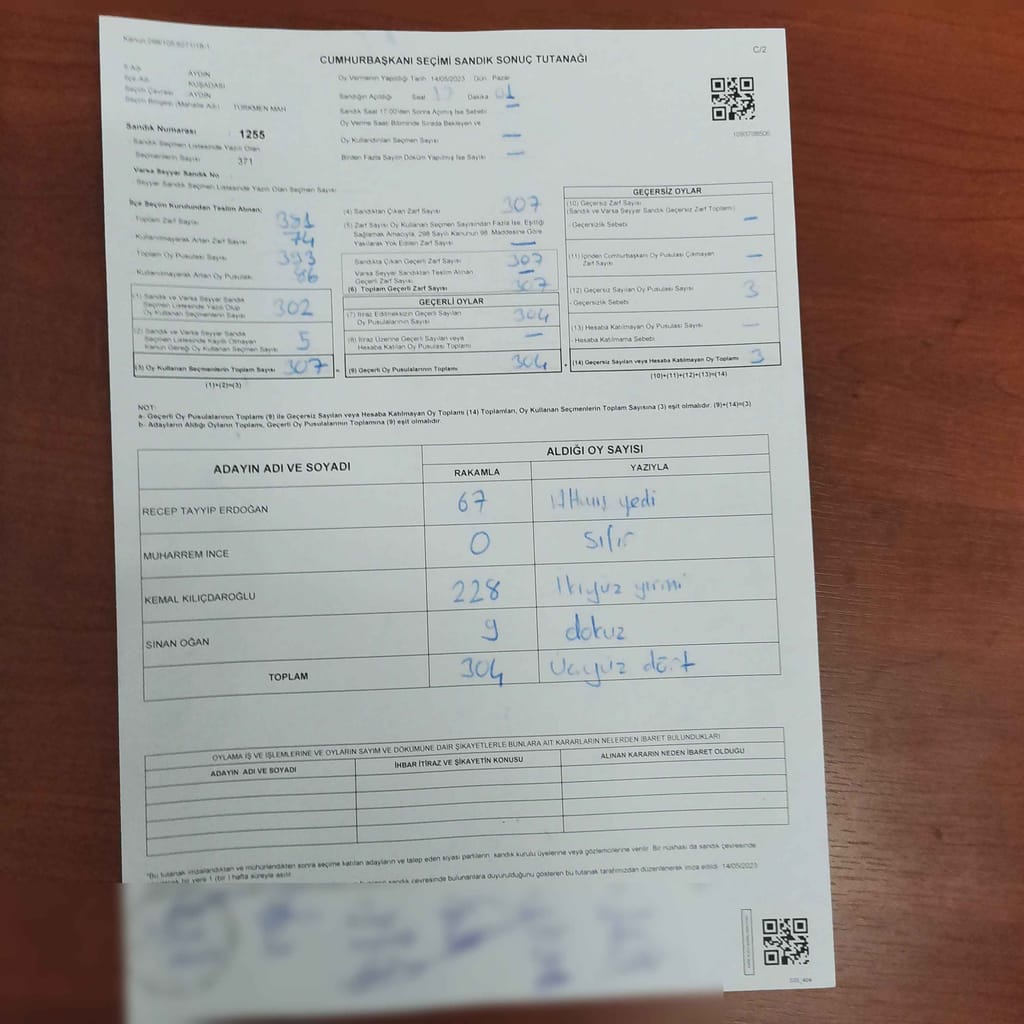 Kanun 298/105-6271/18-1
C/2
CUMHURBAŞKANI SEÇİMİ SANDIK SONUÇ TUTANAĞI
İl Adı : AYDIN
İlçe Adı : KUŞADASI
Seçim Çevresi : AYDIN
Seçim Bölgesi (Mahalle Adı) : TÜRKMEN MAH
Sandık Numarası : 1255
Sandık Seçmen Listesinde Yazılı Olan
Seçmenlerin Sayısı : 371
Varsa Seyyar Sandık No :
Seyyar Sandık Seçmen Listesinde Yazılı Olan Seçmen Sayısı
Oy Vermenin Yapıldığı Tarih 14/05/2023 Gün Pazar
Sandığın Açıldığı Saat 17 Dakika 01
Sandık Saat 17:00'den Sonra Açılmış İse Sebebi —
Oy Verme Saati Bitiminde Sırada Bekleyen ve
Oy Kullandırılan Seçmen Sayısı —
Birden Fazla Sayım Döküm Yapılmış İse Sayısı —
1093708506
İlçe Seçim Kurulundan Teslim Alınan;
Toplam Zarf Sayısı 381
Kullanılmayarak Artan Zarf Sayısı 74
Toplam Oy Pusulası Sayısı 393
Kullanılmayarak Artan Oy Pusulası 86
(1) Sandık ve Varsa Seyyar Sandık
Seçmen Listesinde Yazılı Olup
Oy Kullanan Seçmenlerin Sayısı 302
(2) Sandık ve Varsa Seyyar Sandık
Seçmen Listesinde Kayıtlı Olmayan
Kanun Gereği Oy Kullanan Seçmen Sayısı 5
(3) Oy Kullanan Seçmenlerin Toplam Sayısı 307
(1)+(2)=(3)
(4) Sandıktan Çıkan Zarf Sayısı 307
(5) Zarf Sayısı Oy Kullanan Seçmen Sayısından Fazla İse, Eşitliği
Sağlamak Amacıyla, 298 Sayılı Kanunun 98. Maddesine Göre
Yakılarak Yok Edilen Zarf Sayısı —
Sandıkta Çıkan Geçerli Zarf Sayısı 307
Varsa Seyyar Sandıktan Teslim Alınan
Geçerli Zarf Sayısı —
(6) Toplam Geçerli Zarf Sayısı 307
GEÇERLİ OYLAR
(7) İtiraz Edilmeksizin Geçerli Sayılan
Oy Pusulalarının Sayısı 304
(8) İtiraz Üzerine Geçerli Sayılan veya
Hesaba Katılan Oy Pusulası Toplamı —
(9) Geçerli Oy Pusulalarının Toplamı 304
GEÇERSİZ OYLAR
(10) Geçersiz Zarf Sayısı
(Sandık ve Varsa Seyyar Sandık Geçersiz Zarf Toplamı) —
- Geçersizlik Sebebi
(11) İçinden Cumhurbaşkanı Oy Pusulası Çıkmayan
Zarf Sayısı —
(12) Geçersiz Sayılan Oy Pusulası Sayısı 3
- Geçersizlik Sebebi
(13) Hesaba Katılmayan Oy Pusulası Sayısı —
- Hesaba Katılmama Sebebi
(14) Geçersiz Sayılan veya Hesaba Katılmayan Oy Toplamı 3
(10)+(11)+(12)+(13)=(14)
NOT:
a- Geçerli Oy Pusulalarının Toplamı (9) ile Geçersiz Sayılan veya Hesaba Katılmayan Oy Toplamı (14) Toplamları, Oy Kullanan Seçmenlerin Toplam Sayısına (3) eşit olmalıdır. (9)+(14)=(3)
b- Adayların Aldığı Oyların Toplamı, Geçerli Oy Pusulalarının Toplamına (9) eşit olmalıdır.
ADAYIN ADI VE SOYADI
ALDIĞI OY SAYISI
RAKAMLA YAZIYLA
RECEP TAYYİP ERDOĞAN 67 Altmış yedi
MUHARREM İNCE 0 Sıfır
KEMAL KILIÇDAROĞLU 228 İkiyüz yirmi
SİNAN OĞAN 9 dokuz
TOPLAM 304 Üçyüz dört
OYLAMA İŞ VE İŞLEMLERİNE VE OYLARIN SAYIM VE DÖKÜMÜNE DAİR ŞİKAYETLERLE BUNLARA AİT KARARLARIN NELERDEN İBARET BULUNDUKLARI
ADAYIN ADI VE SOYADI İHBAR İTİRAZ VE ŞİKAYETİN KONUSU ALINAN KARARIN NEDEN İBARET OLDUĞU
"Bu tutanak imzalandıktan ve mühürlendikten sonra seçime katılan adayların ve talep eden siyasi partilerin sandık kurulu üyelerine veya gözlemcilerine verilir. Bir nüshası da sandık çevresinde
bir yere 1 (bir) hafta süreyle asılır.
sandık çevresinde bulunanlara duyurulduğunu gösteren bu tutanak tarafımızdan düzenlenerek imza edildi. 14/05/2023